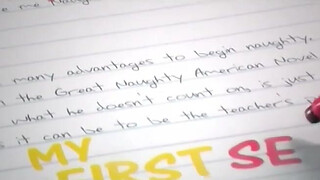 e me
many advantages to begin naughty.
the Great Naughty American Novel
what he doesn't count on is just
it can be to be the teacher's
MY
FIRST SE